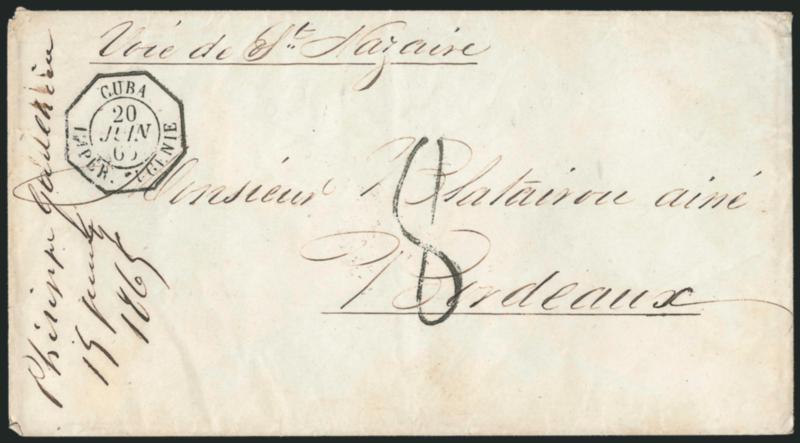 Voie de St. Nazaire
CUBA
20
JUIN
65
IMPER. EUGENIE
8
Monsieur Platairou ainé
Bordeaux
Philippe
15
1865